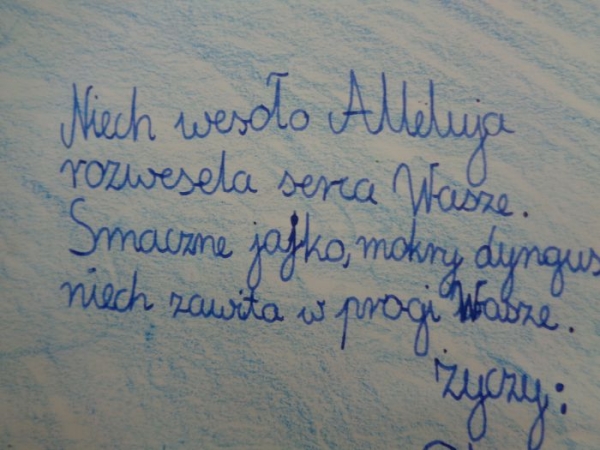 Niech wesoło Alleluja
rozwesela serca Wasze.
Smaczne jajko, mokry dyngus
niech zawita w progi Wasze.
życzy: